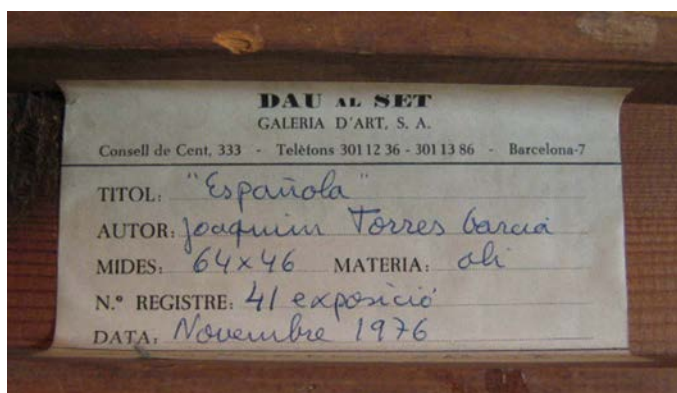 DAU AL SET
GALERIA D'ART, S. A.
Consell de Cent, 333 - Telèfons 301 12 36 - 301 13 86 - Barcelona-7
TITOL: "Española"
AUTOR: Joaquim Torres Garcia
MIDES: 64x46 MATERIA: oli
N.º REGISTRE: 41 exposició
DATA: Novembre 1976